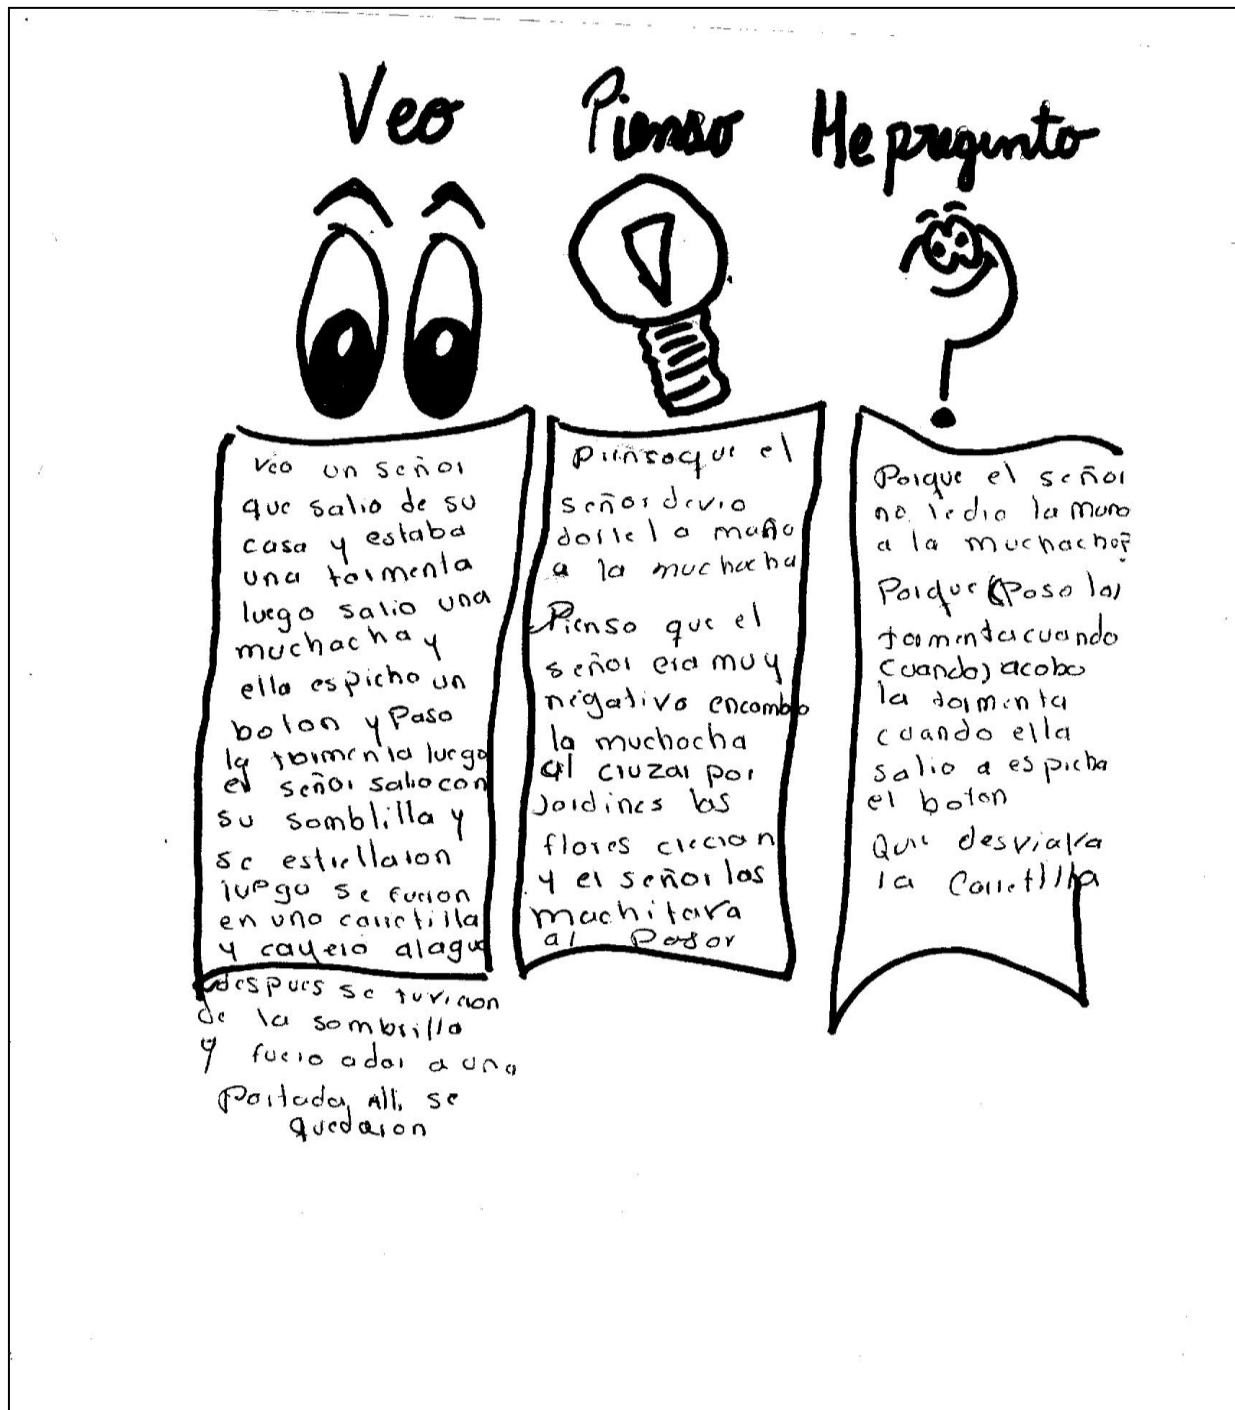 Veo
veo un señor
que salio de su
casa y estaba
una tormenta
luego salio una
muchacha y
ella espicho un
boton y Paso
la tormenta luego
el señor salio con
su somblilla y
se estrellaron
luego se fueron
en una carretilla
y cayero alagua
despues se tuvieron
de la sombrilla
y fuero adar a una
Portada, Alli se
quedaron
Pienso
piensoque el
señor devio
darle la maño
a la muchacha
Pienso que el
señor era muy
negativo encambio
la muchocha
al cruzar por
Jardines las
flores crecian
y el señor las
machitara
al Pasar
Me pregunto
Porque el señor
no ledio la mano
a la muchacha?
Porque (Paso la)
tormentacuando
(cuando) acabo
la tormenta
cuando ella
salio a espicha
el boton
Que desviara
la Carretilla